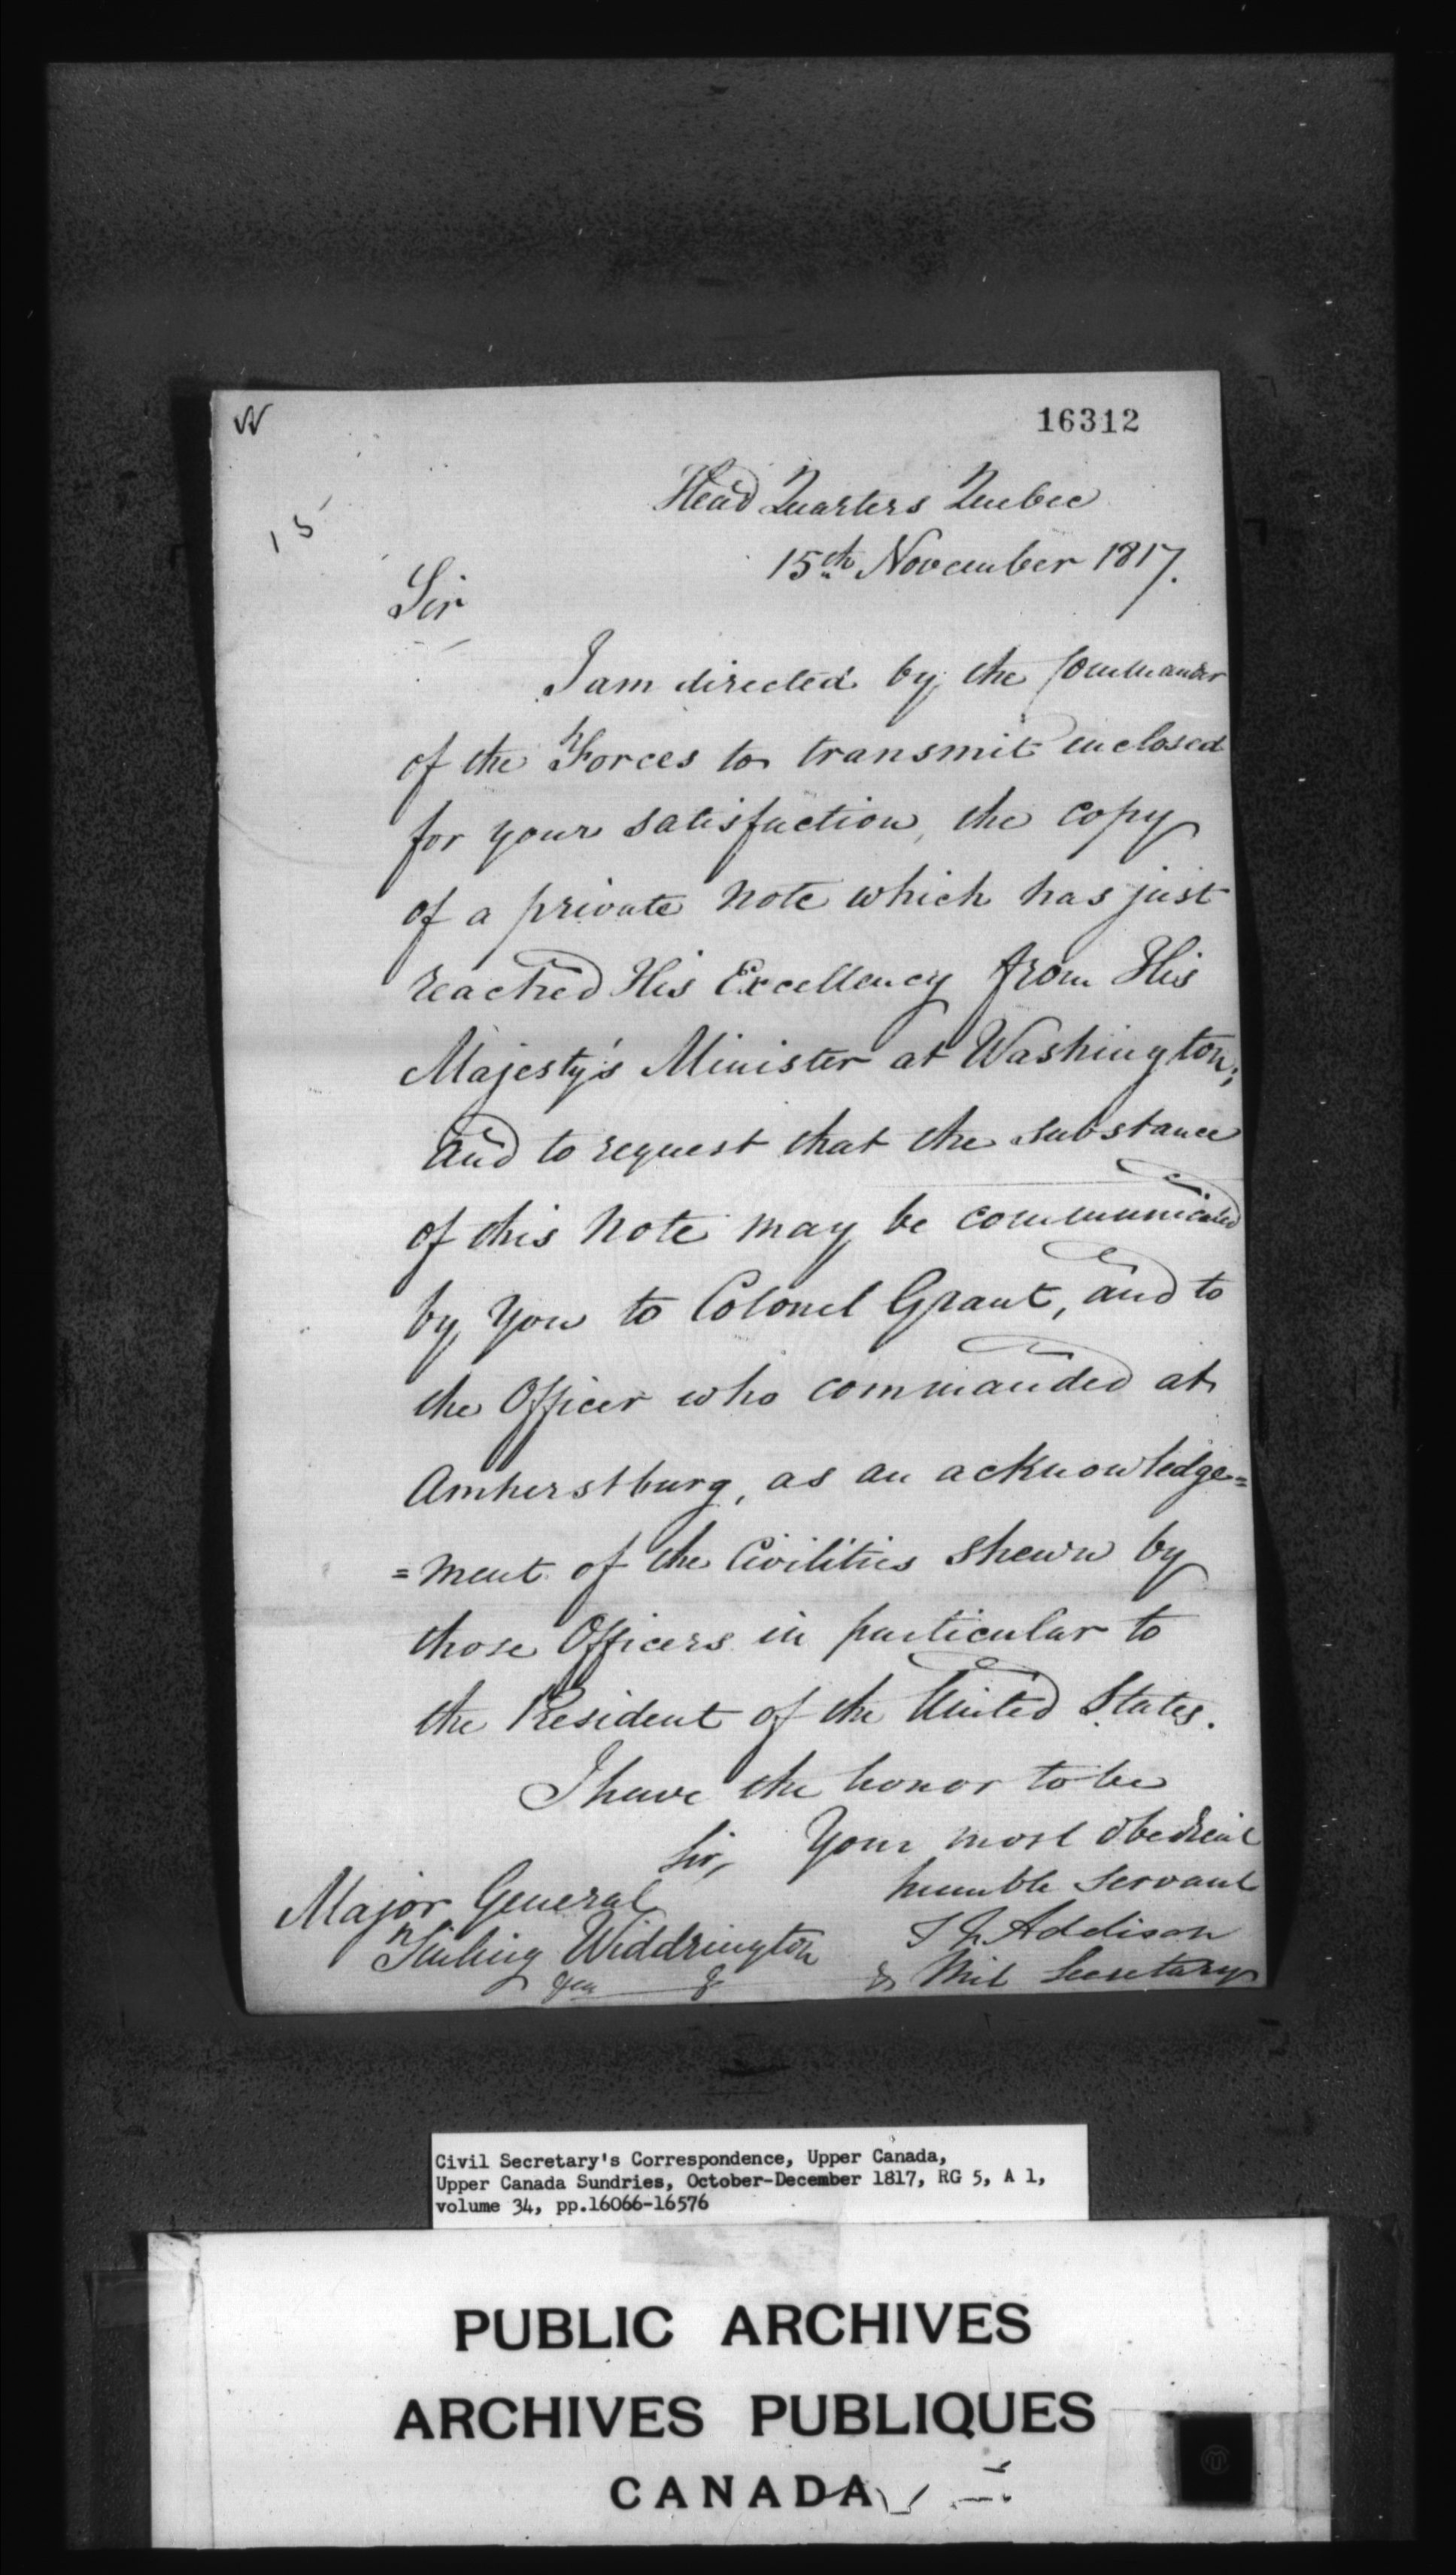 W
16312
Head Quarters Quebec
15th November 1817.
15
Sir
I am directed by the Commander
of the Forces to transmit enclosed
for your satisfaction, the copy
of a private Note which has just
reached His Excellency from His
Majesty's Minister at Washington;
and to request that the substance
of this Note may be communicated
by You to Colonel Grant, and to
the Officer who commanded at
Amherstburg, as an acknowledge=
=ment of the Civilities shewn by
those Officers in particular to
the President of the United States.
I have the honor to be
Sir, Your most obedient
humble servant
Major General
T J Addison
Widdrington
Mil Secretary
Civil Secretary's Correspondence, Upper Canada,
Upper Canada Sundries, October-December 1817, RG 5, A 1,
volume 34, pp.16066-16576
PUBLIC ARCHIVES
ARCHIVES PUBLIQUES
CANADA